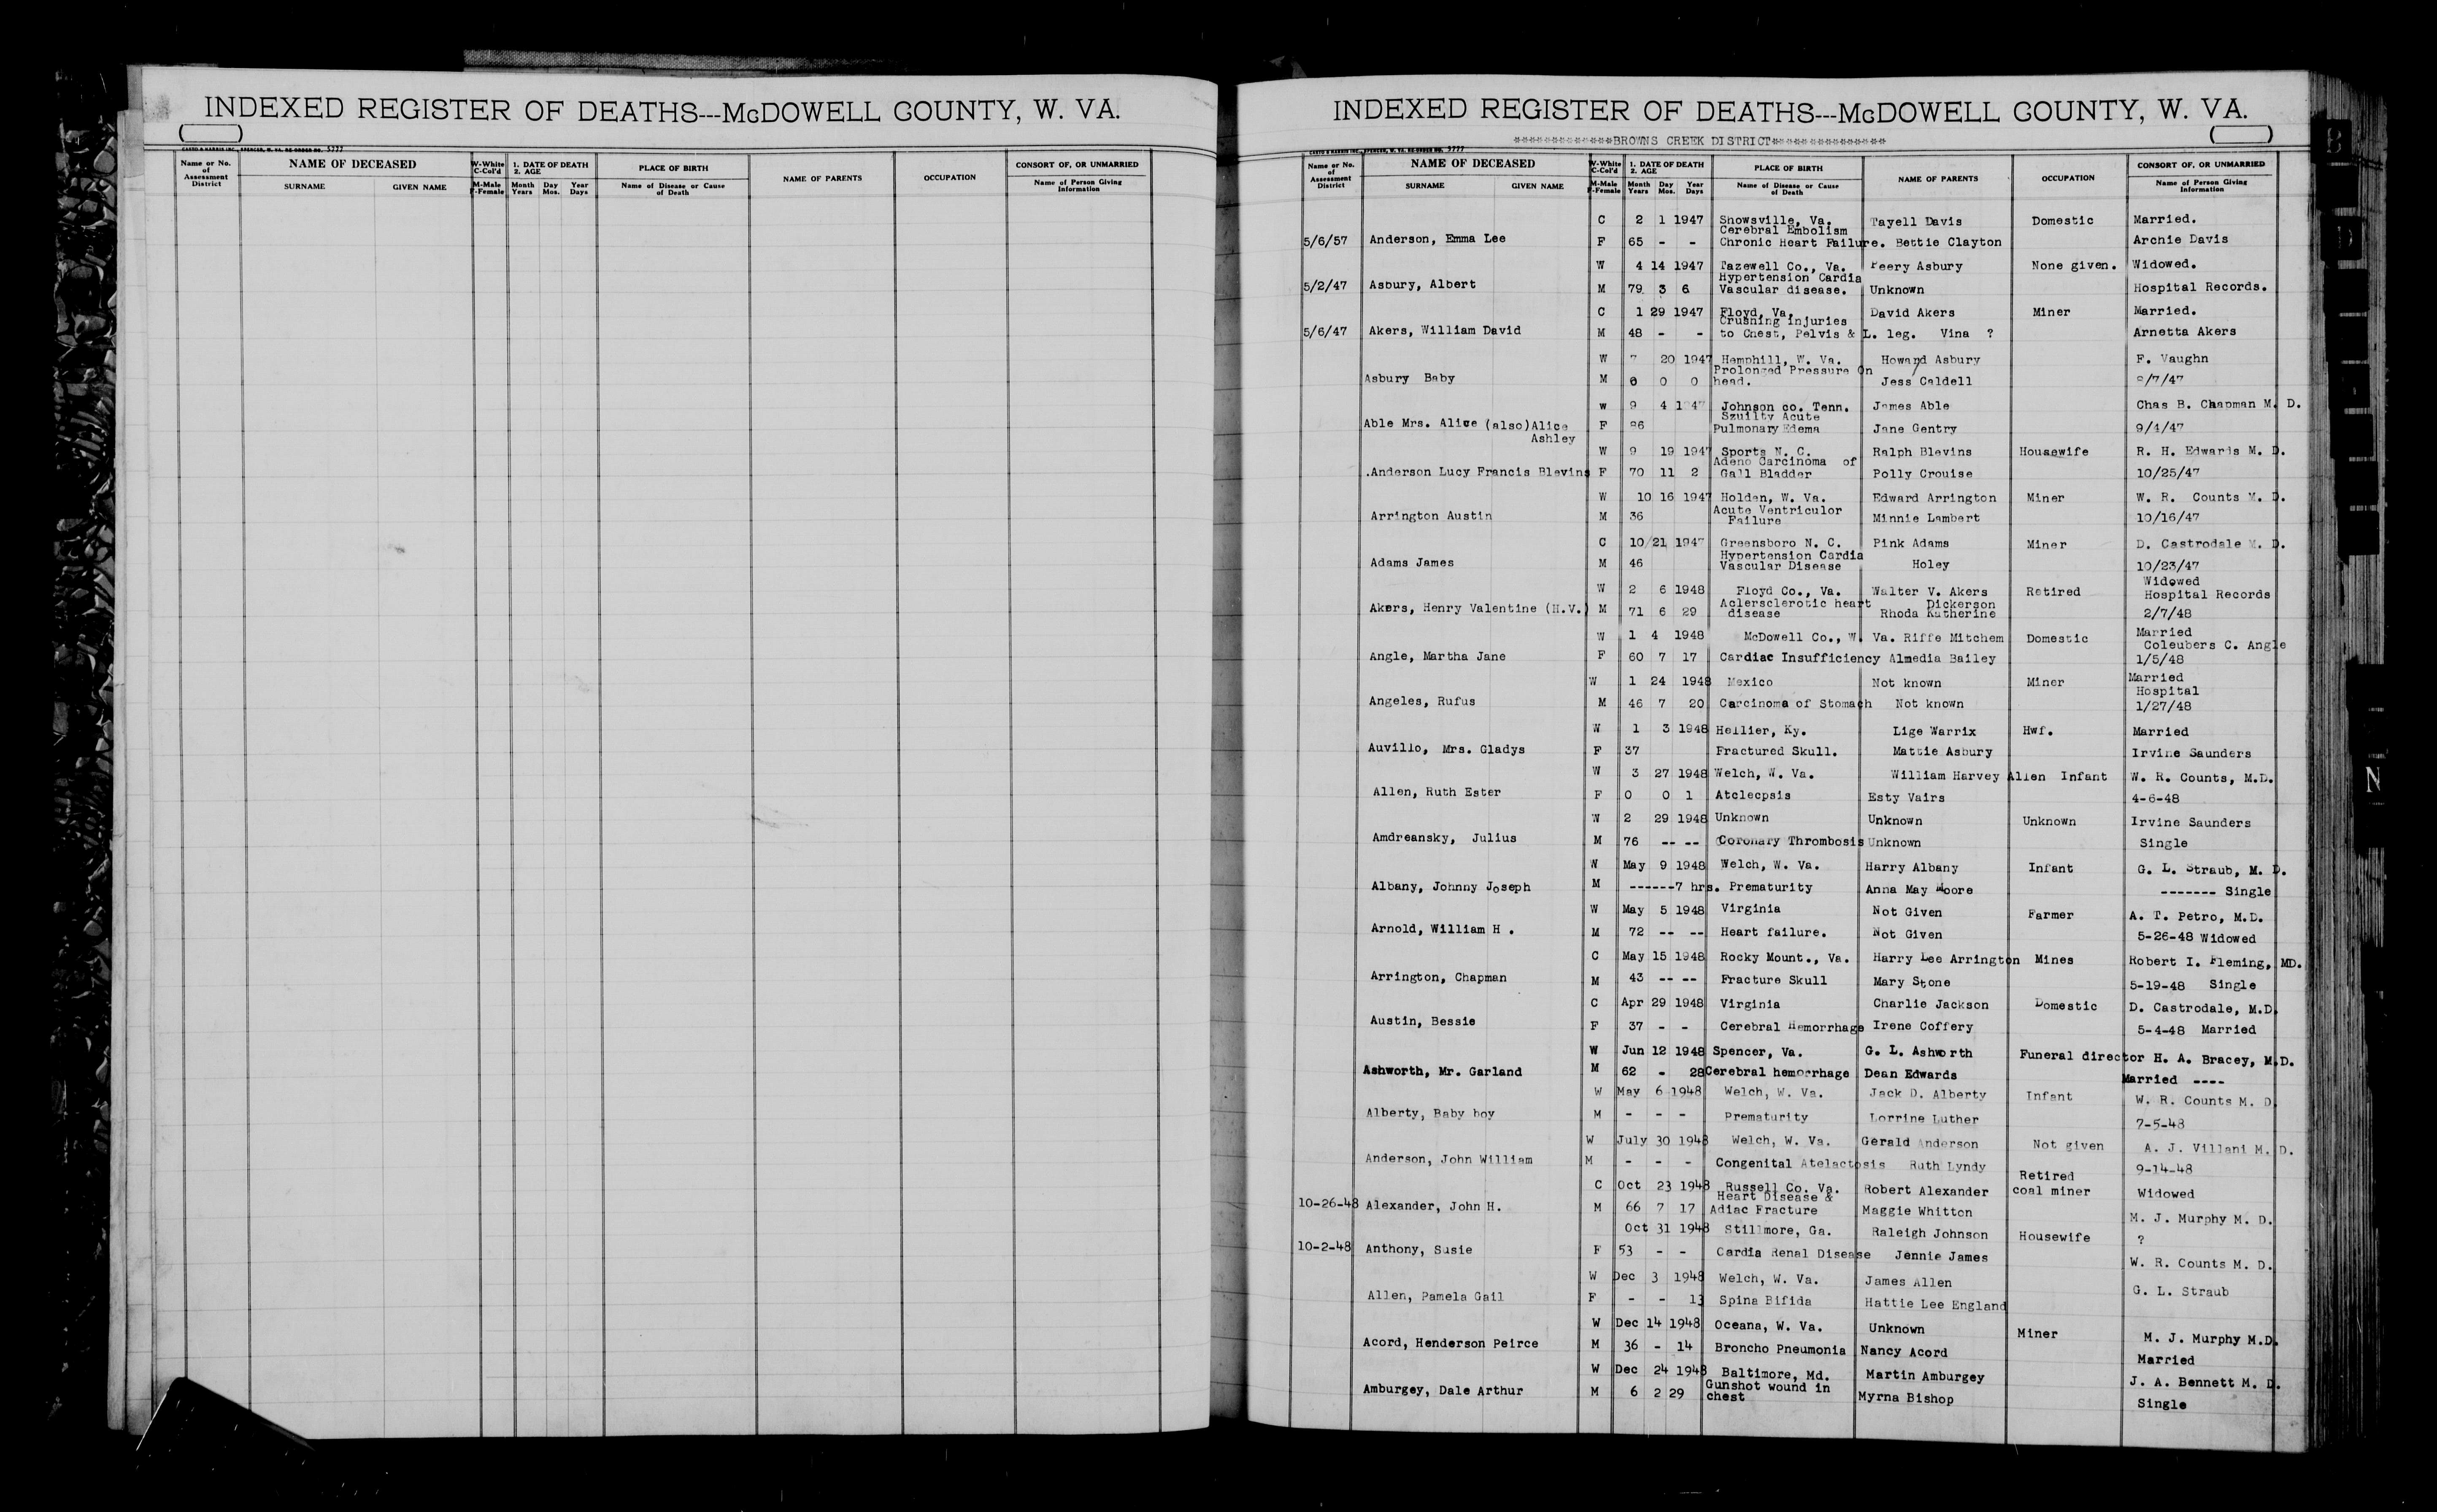 INDEXED REGISTER OF DEATHS---McDOWELL COUNTY, W. VA.
Name or No. of Assessment District
NAME OF DECEASED
SURNAME GIVEN NAME
W-White C-Col'd
M-Male F-Female
1. DATE OF DEATH
2. AGE
Month Day Year
Years Mos. Days
PLACE OF BIRTH
Name of Disease or Cause of Death
NAME OF PARENTS
OCCUPATION
CONSORT OF, OR UNMARRIED
Name of Person Giving Information
INDEXED REGISTER OF DEATHS---McDOWELL COUNTY, W. VA.
*************BROWNS CREEK DISTRICT***************
Name or No. of Assessment District
NAME OF DECEASED
SURNAME GIVEN NAME
W-White C-Col'd
M-Male F-Female
1. DATE OF DEATH
2. AGE
Month Day Year
Years Mos. Days
PLACE OF BIRTH
Name of Disease or Cause of Death
NAME OF PARENTS
OCCUPATION
CONSORT OF, OR UNMARRIED
Name of Person Giving Information
C 2 1 1947 Snowsville, Va. Tayell Davis Domestic Married.
Cerebral Embolism
5/6/57 Anderson, Emma Lee F 65 - - Chronic Heart Failure. Bettie Clayton Archie Davis
W 4 14 1947 Tazewell Co., Va. Peery Asbury None given. Widowed.
Hypertension Cardia
5/2/47 Asbury, Albert M 79 3 6 Vascular disease. Unknown Hospital Records.
C 1 29 1947 Floyd, Va. David Akers Miner Married.
Crushing injuries
5/6/47 Akers, William David M 48 - - to Chest, Pelvis & L. leg. Vina ? Arnetta Akers
W 7 20 1947 Hemphill, W. Va. Howard Asbury F. Vaughn
Prolonged Pressure On
Asbury Baby M 0 0 0 head. Jess Caldell 8/7/47
W 9 4 1947 Johnson co. Tenn. James Able Chas B. Chapman M. D.
Szuilty Acute
Able Mrs. Alice (also)Alice F 86 Pulmonary Edema Jane Gentry 9/4/47
Ashley
W 9 19 1947 Sports N. C. Ralph Blevins Housewife R. H. Edwards M. D.
Adeno Carcinoma of
.Anderson Lucy Francis Blevins F 70 11 2 Gall Bladder Polly Crouise 10/25/47
W 10 16 1947 Holden, W. Va. Edward Arrington Miner W. R. Counts M. D.
Acute Ventriculor
Arrington Austin M 36 Failure Minnie Lambert 10/16/47
C 10/21 1947 Greensboro N. C. Pink Adams Miner D. Castrodale M. D.
Hypertension Cardia
Adams James M 46 Vascular Disease Holey 10/23/47
Widowed
W 2 6 1948 Floyd Co., Va. Walter V. Akers Retired Hospital Records
Aclersclerotic heart Dickerson
Akers, Henry Valentine (H.V.) M 71 6 29 disease Rhoda Katherine 2/7/48
W 1 4 1948 McDowell Co., W. Va. Riffe Mitchem Domestic Married
Coleubers C. Angle
Angle, Martha Jane F 60 7 17 Cardiac Insufficiency Almedia Bailey 1/5/48
W 1 24 1948 Mexico Not known Miner Married
Hospital
Angeles, Rufus M 46 7 20 Carcinoma of Stomach Not known 1/27/48
W 1 3 1948 Hellier, Ky. Lige Warrix Hwf. Married
Auvillo, Mrs. Gladys F 37 Fractured Skull. Mattie Asbury Irvine Saunders
W 3 27 1948 Welch, W. Va. William Harvey Allen Infant W. R. Counts, M.D.
Allen, Ruth Ester F 0 0 1 Atclecpsis Esty Vairs 4-6-48
W 2 29 1948 Unknown Unknown Unknown Irvine Saunders
Amdreansky, Julius M 76 -- -- Coronary Thrombosis Unknown Single
W May 9 1948 Welch, W. Va. Harry Albany Infant G. L. Straub, M. D.
Albany, Johnny Joseph M ------7 hrs. Prematurity Anna May Moore ------- Single
W May 5 1948 Virginia Not Given Farmer A. T. Petro, M.D.
Arnold, William H . M 72 -- -- Heart failure. Not Given 5-26-48 Widowed
C May 15 1948 Rocky Mount., Va. Harry Lee Arrington Mines Robert I. Fleming, MD.
Arrington, Chapman M 43 -- -- Fracture Skull Mary Stone 5-19-48 Single
C Apr 29 1948 Virginia Charlie Jackson Domestic D. Castrodale, M.D
Austin, Bessie F 37 - - Cerebral Hemorrhage Irene Coffery 5-4-48 Married
W Jun 12 1948 Spencer, Va. G. L. Ashworth Funeral director H. A. Bracey, M.D.
Ashworth, Mr. Garland M 62 - 28 Cerebral hemorrhage Dean Edwards Married ----
W May 6 1948 Welch, W. Va. Jack D. Alberty Infant W. R. Counts M. D
Alberty, Baby boy M - - - Prematurity Lorrine Luther 7-5-48
W July 30 1948 Welch, W. Va. Gerald Anderson Not given A. J. Villani M. D.
Anderson, John William M - - - Congenital Atelactosis Ruth Lyndy 9-14-48
C Oct 23 1948 Russell Co. Va. Robert Alexander Retired coal miner Widowed
Heart Disease &
10-26-48 Alexander, John H. M 66 7 17 Adiac Fracture Maggie Whitton M. J. Murphy M. D.
Oct 31 1948 Stillmore, Ga. Raleigh Johnson Housewife ?
10-2-48 Anthony, Susie F 53 - - Cardia Renal Disease Jennie James W. R. Counts M. D.
W Dec 3 1948 Welch, W. Va. James Allen
Allen, Pamela Gail F - - 13 Spina Bifida Hattie Lee England G. L. Straub
W Dec 14 1948 Oceana, W. Va. Unknown Miner M. J. Murphy M.D.
Acord, Henderson Peirce M 36 - 14 Broncho Pneumonia Nancy Acord Married
W Dec 24 1948 Baltimore, Md. Martin Amburgey J. A. Bennett M. D.
Gunshot wound in
Amburgey, Dale Arthur M 6 2 29 chest Myrna Bishop Single
B
D
N